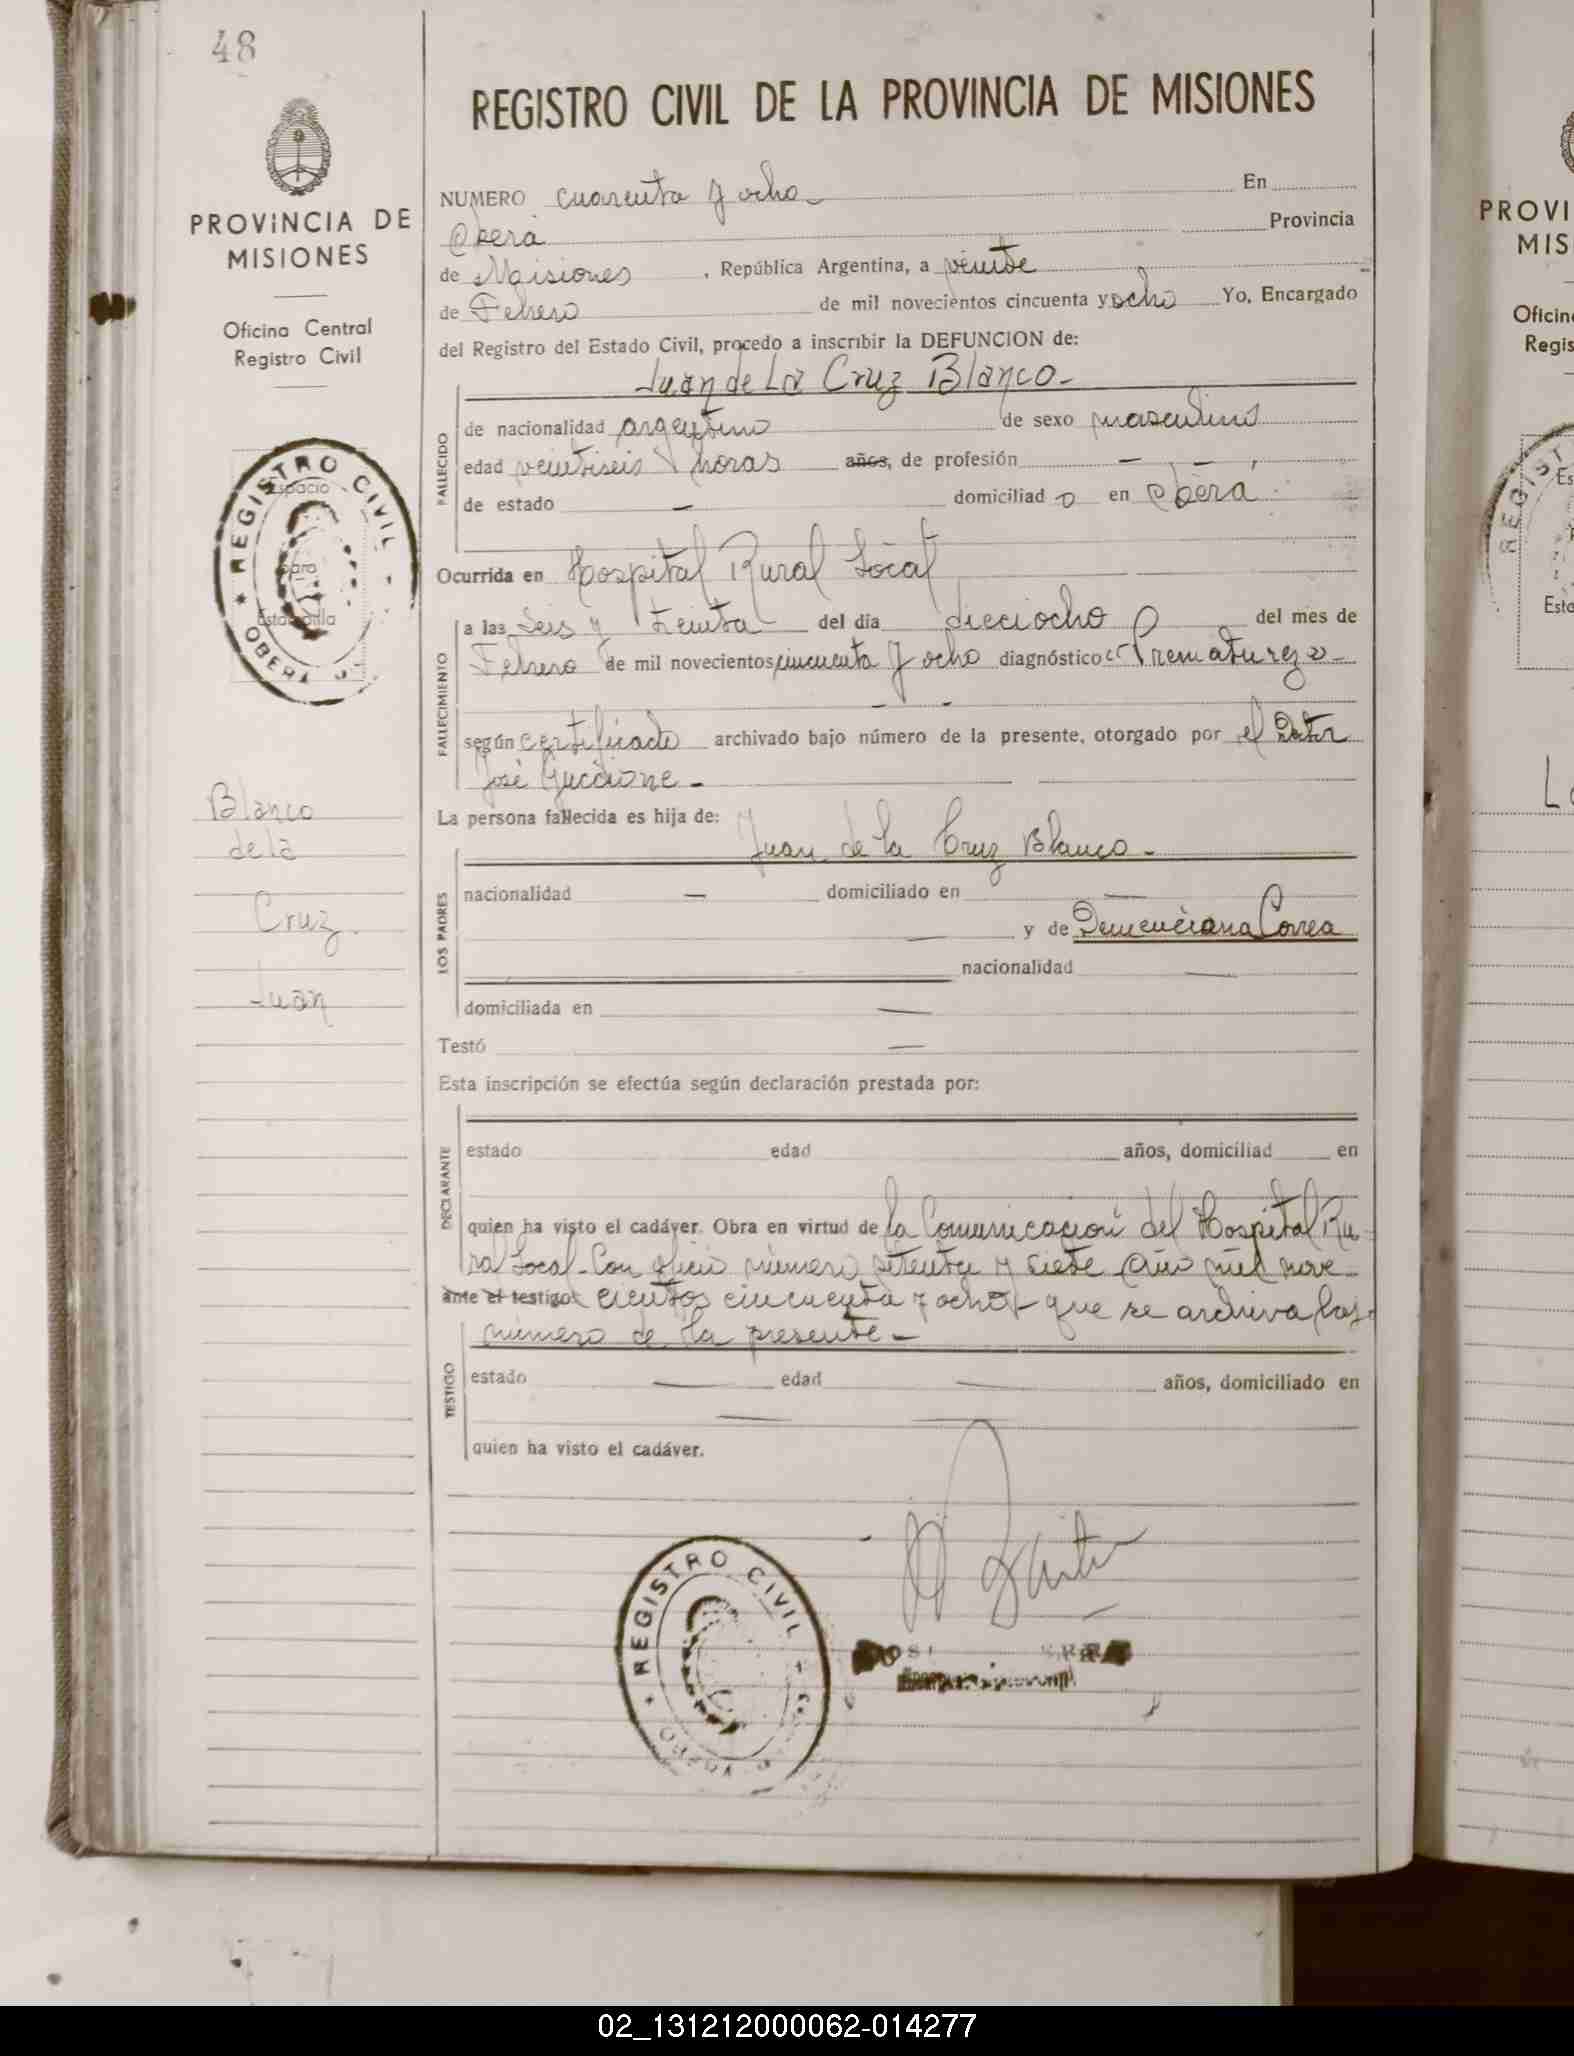 48
REGISTRO CIVIL DE LA PROVINCIA DE MISIONES
PROVINCIA DE
MISIONES
Oficina Central
Registro Civil
REGISTRO CIVIL
Espacio
para
Estampilla
OBERA
Blanco
de la
Cruz
Juan
NUMERO cuarenta y ocho - En
Oberá Provincia
de Misiones, República Argentina, a veinte
de Febrero de mil novecientos cincuenta y ocho Yo, Encargado
del Registro del Estado Civil, procedo a inscribir la DEFUNCION de:
Juan de La Cruz Blanco -
FALLECIDO
de nacionalidad argentino de sexo masculino
edad veintiseis horas años, de profesión - -
de estado - domiciliad o en Oberá
Ocurrida en Hospital Rural Local
FALLECIMIENTO
a las Seis y Treinta del día dieciocho del mes de
Febrero de mil novecientos cincuenta y ocho diagnóstico Prematurez -
- -
según certificado archivado bajo número de la presente, otorgado por el Doctor
José Guccione -
La persona fallecida es hija de:
Juan de la Cruz Blanco -
LOS PADRES
nacionalidad - domiciliado en -
- y de Demenciana Correa
nacionalidad -
domiciliada en -
Testó -
Esta inscripción se efectúa según declaración prestada por:
DECLARANTE
estado edad años, domiciliad en
quien ha visto el cadáver. Obra en virtud de la Comunicación del Hospital Ru-
ral Local - Con oficio número setenta y siete año mil nove
ante el testigo: cientos cincuenta y ocho - que se archiva bajo
número de la presente -
TESTIGO
estado - edad - años, domiciliado en
- -
quien ha visto el cadáver.
REGISTRO CIVIL
PROVI
MIS
Oficin
Regis
REGIST
Es
Esta
02_131212000062-014277